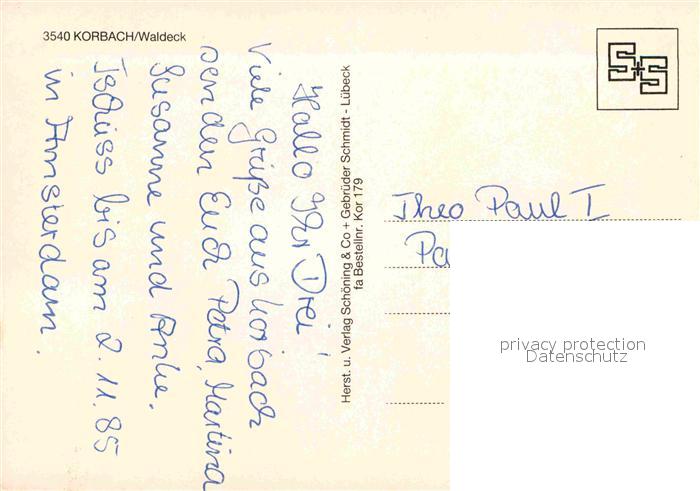 3540 KORBACH/Waldeck
Hallo Ihr Drei!
Viele Grüße aus Korbach
senden Euch Petra, Martina
Susanne und Anke.
Tschüss bis am 2.11.85
in Amsterdam.
Herst. u. Verlag Schöning & Co + Gebrüder Schmidt - Lübeck
fa Bestellnr. Kor 179
S+S
Theo Paul I
Pa
privacy protection
Datenschutz